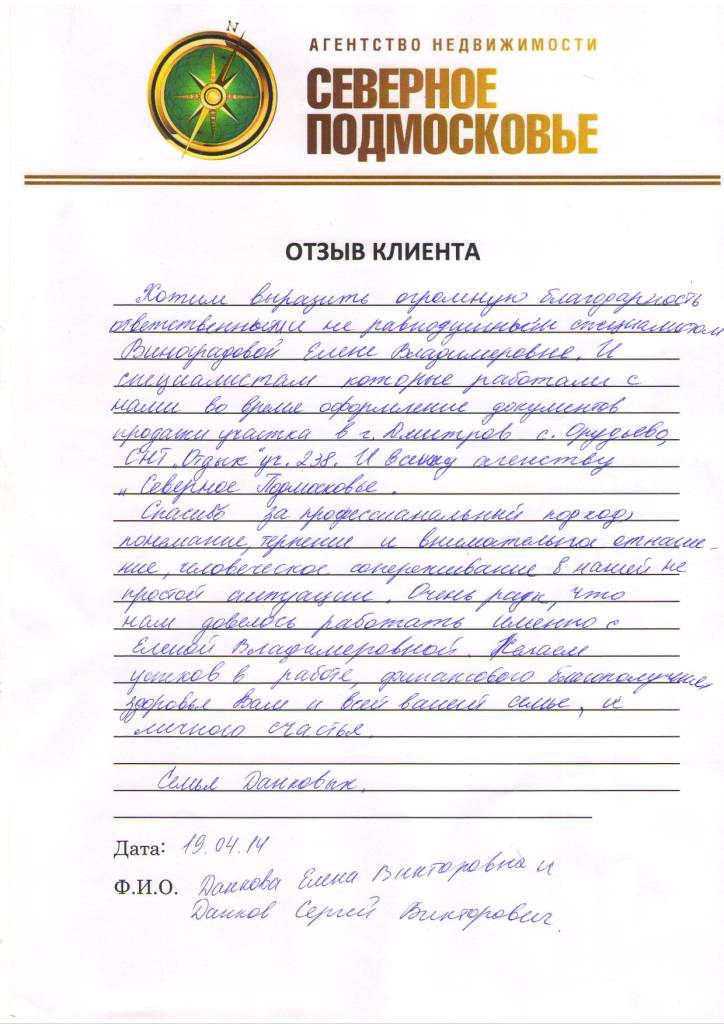 N
АГЕНТСТВО НЕДВИЖИМОСТИ
СЕВЕРНОЕ
ПОДМОСКОВЬЕ
ОТЗЫВ КЛИЕНТА
Хотим выразить огромную благодарность
ответственным и не равнодушным специалистам
Виноградовой Елене Владимеровне. И
специалистам которые работали с
нами во время оформление документов
продажи участка в г. Дмитров с. Орудьево,
СНТ „Отдых" уч. 238. И всему агенству
„Северное Подмосковье.
Спасибо за профессианальный подход,
понемание, терпение и внимательное отноше-
ние, человеческое сопереживание в нашей не
простой ситуации. Очень рады, что
нам довелось работать именно с
Еленой Владимеровной. Желаем
успехов в работе, финансового благополучие,
здоровья Вам и всей вашей семье, и
личного счастья.
Семья Данковых.
Дата: 19.04.14
Ф.И.О. Данкова Елена Викторовна и
Данков Сергей Викторович.